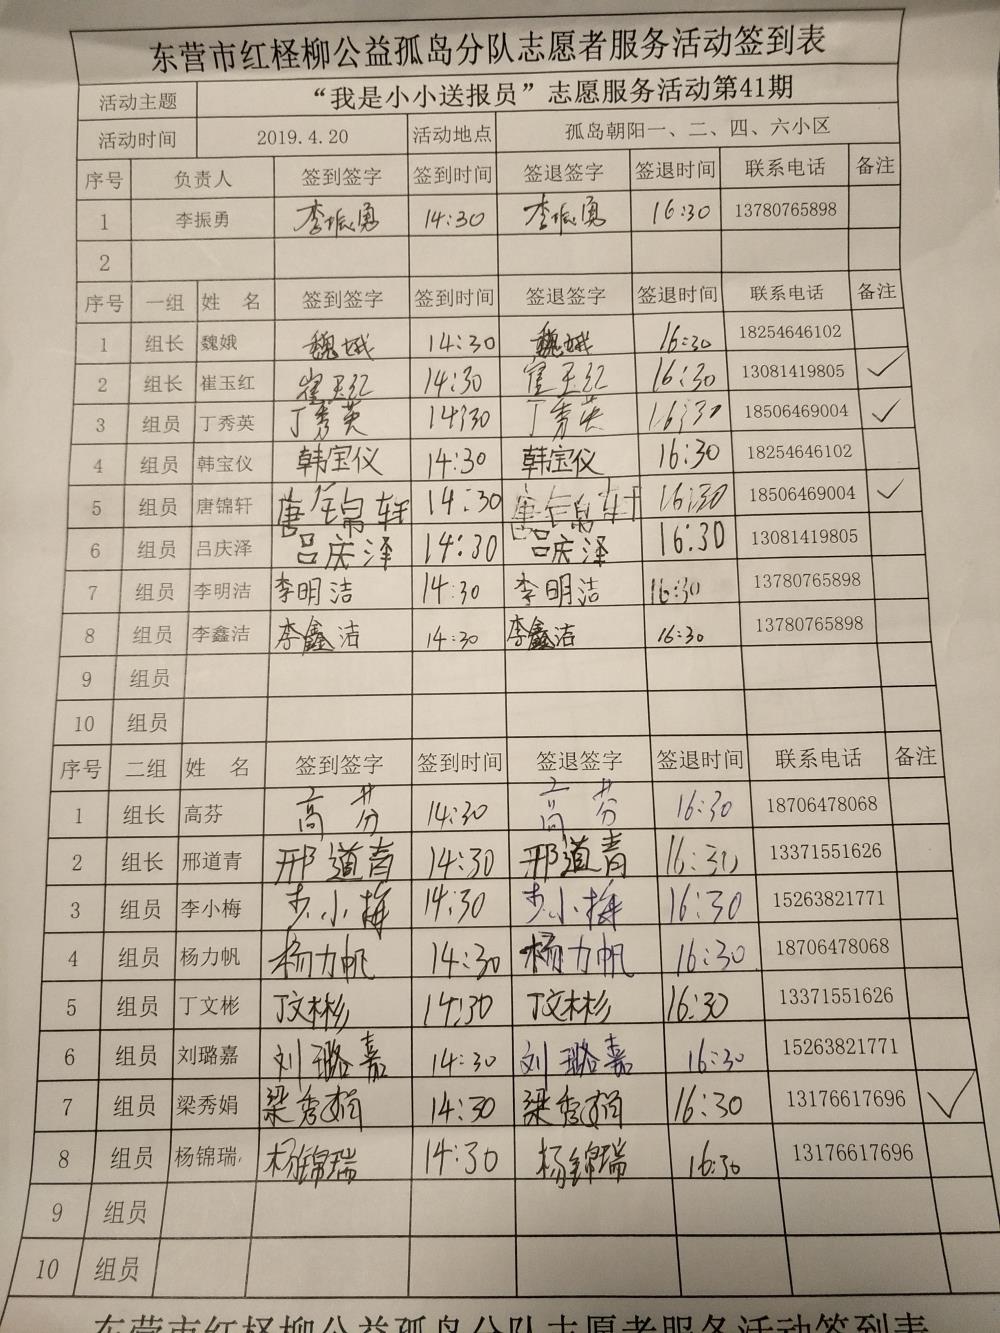 东营市红柽柳公益孤岛分队志愿者服务活动签到表
活动主题 “我是小小送报员”志愿服务活动第41期
活动时间 2019.4.20 活动地点 孤岛朝阳一、二、四、六小区
序号 负责人 签到签字 签到时间 签退签字 签退时间 联系电话 备注
1 李振勇 李振勇 14:30 李振勇 16:30 13780765898
2
序号 一组 姓 名 签到签字 签到时间 签退签字 签退时间 联系电话 备注
1 组长 魏娥 魏娥 14:30 魏娥 16:30 18254646102
2 组长 崔玉红 崔玉红 14:30 崔玉红 16:30 13081419805 ✓
3 组员 丁秀英 丁秀英 14:30 丁秀英 16:30 18506469004 ✓
4 组员 韩宝仪 韩宝仪 14:30 韩宝仪 16:30 18254646102
5 组员 唐锦轩 唐锦轩 14:30 唐锦轩 16:30 18506469004 ✓
6 组员 吕庆泽 吕庆泽 14:30 吕庆泽 16:30 13081419805
7 组员 李明洁 李明洁 14:30 李明洁 16:30 13780765898
8 组员 李鑫洁 李鑫洁 14:30 李鑫洁 16:30 13780765898
9 组员
10 组员
序号 二组 姓 名 签到签字 签到时间 签退签字 签退时间 联系电话 备注
1 组长 高芬 高芬 14:30 高芬 16:30 18706478068
2 组长 邢道青 邢道青 14:30 邢道青 16:30 13371551626
3 组员 李小梅 李小梅 14:30 李小梅 16:30 15263821771
4 组员 杨力帆 杨力帆 14:30 杨力帆 16:30 18706478068
5 组员 丁文彬 丁文彬 14:30 丁文彬 16:30 13371551626
6 组员 刘璐嘉 刘璐嘉 14:30 刘璐嘉 16:30 15263821771
7 组员 梁秀娟 梁秀娟 14:30 梁秀娟 16:30 13176617696 ✓
8 组员 杨锦瑞 杨锦瑞 14:30 杨锦瑞 16:30 13176617696
9 组员
10 组员
东营市红柽柳公益孤岛分队志愿者服务活动签到表